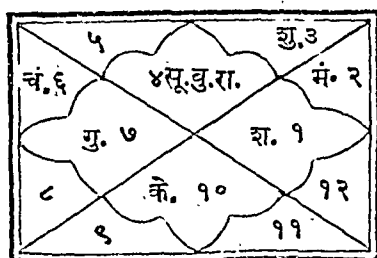 ५ शु.३
चं.६ ४सू.बु.रा. मं.२
गु. ७ श. १
८ के. १० १२
९ ११